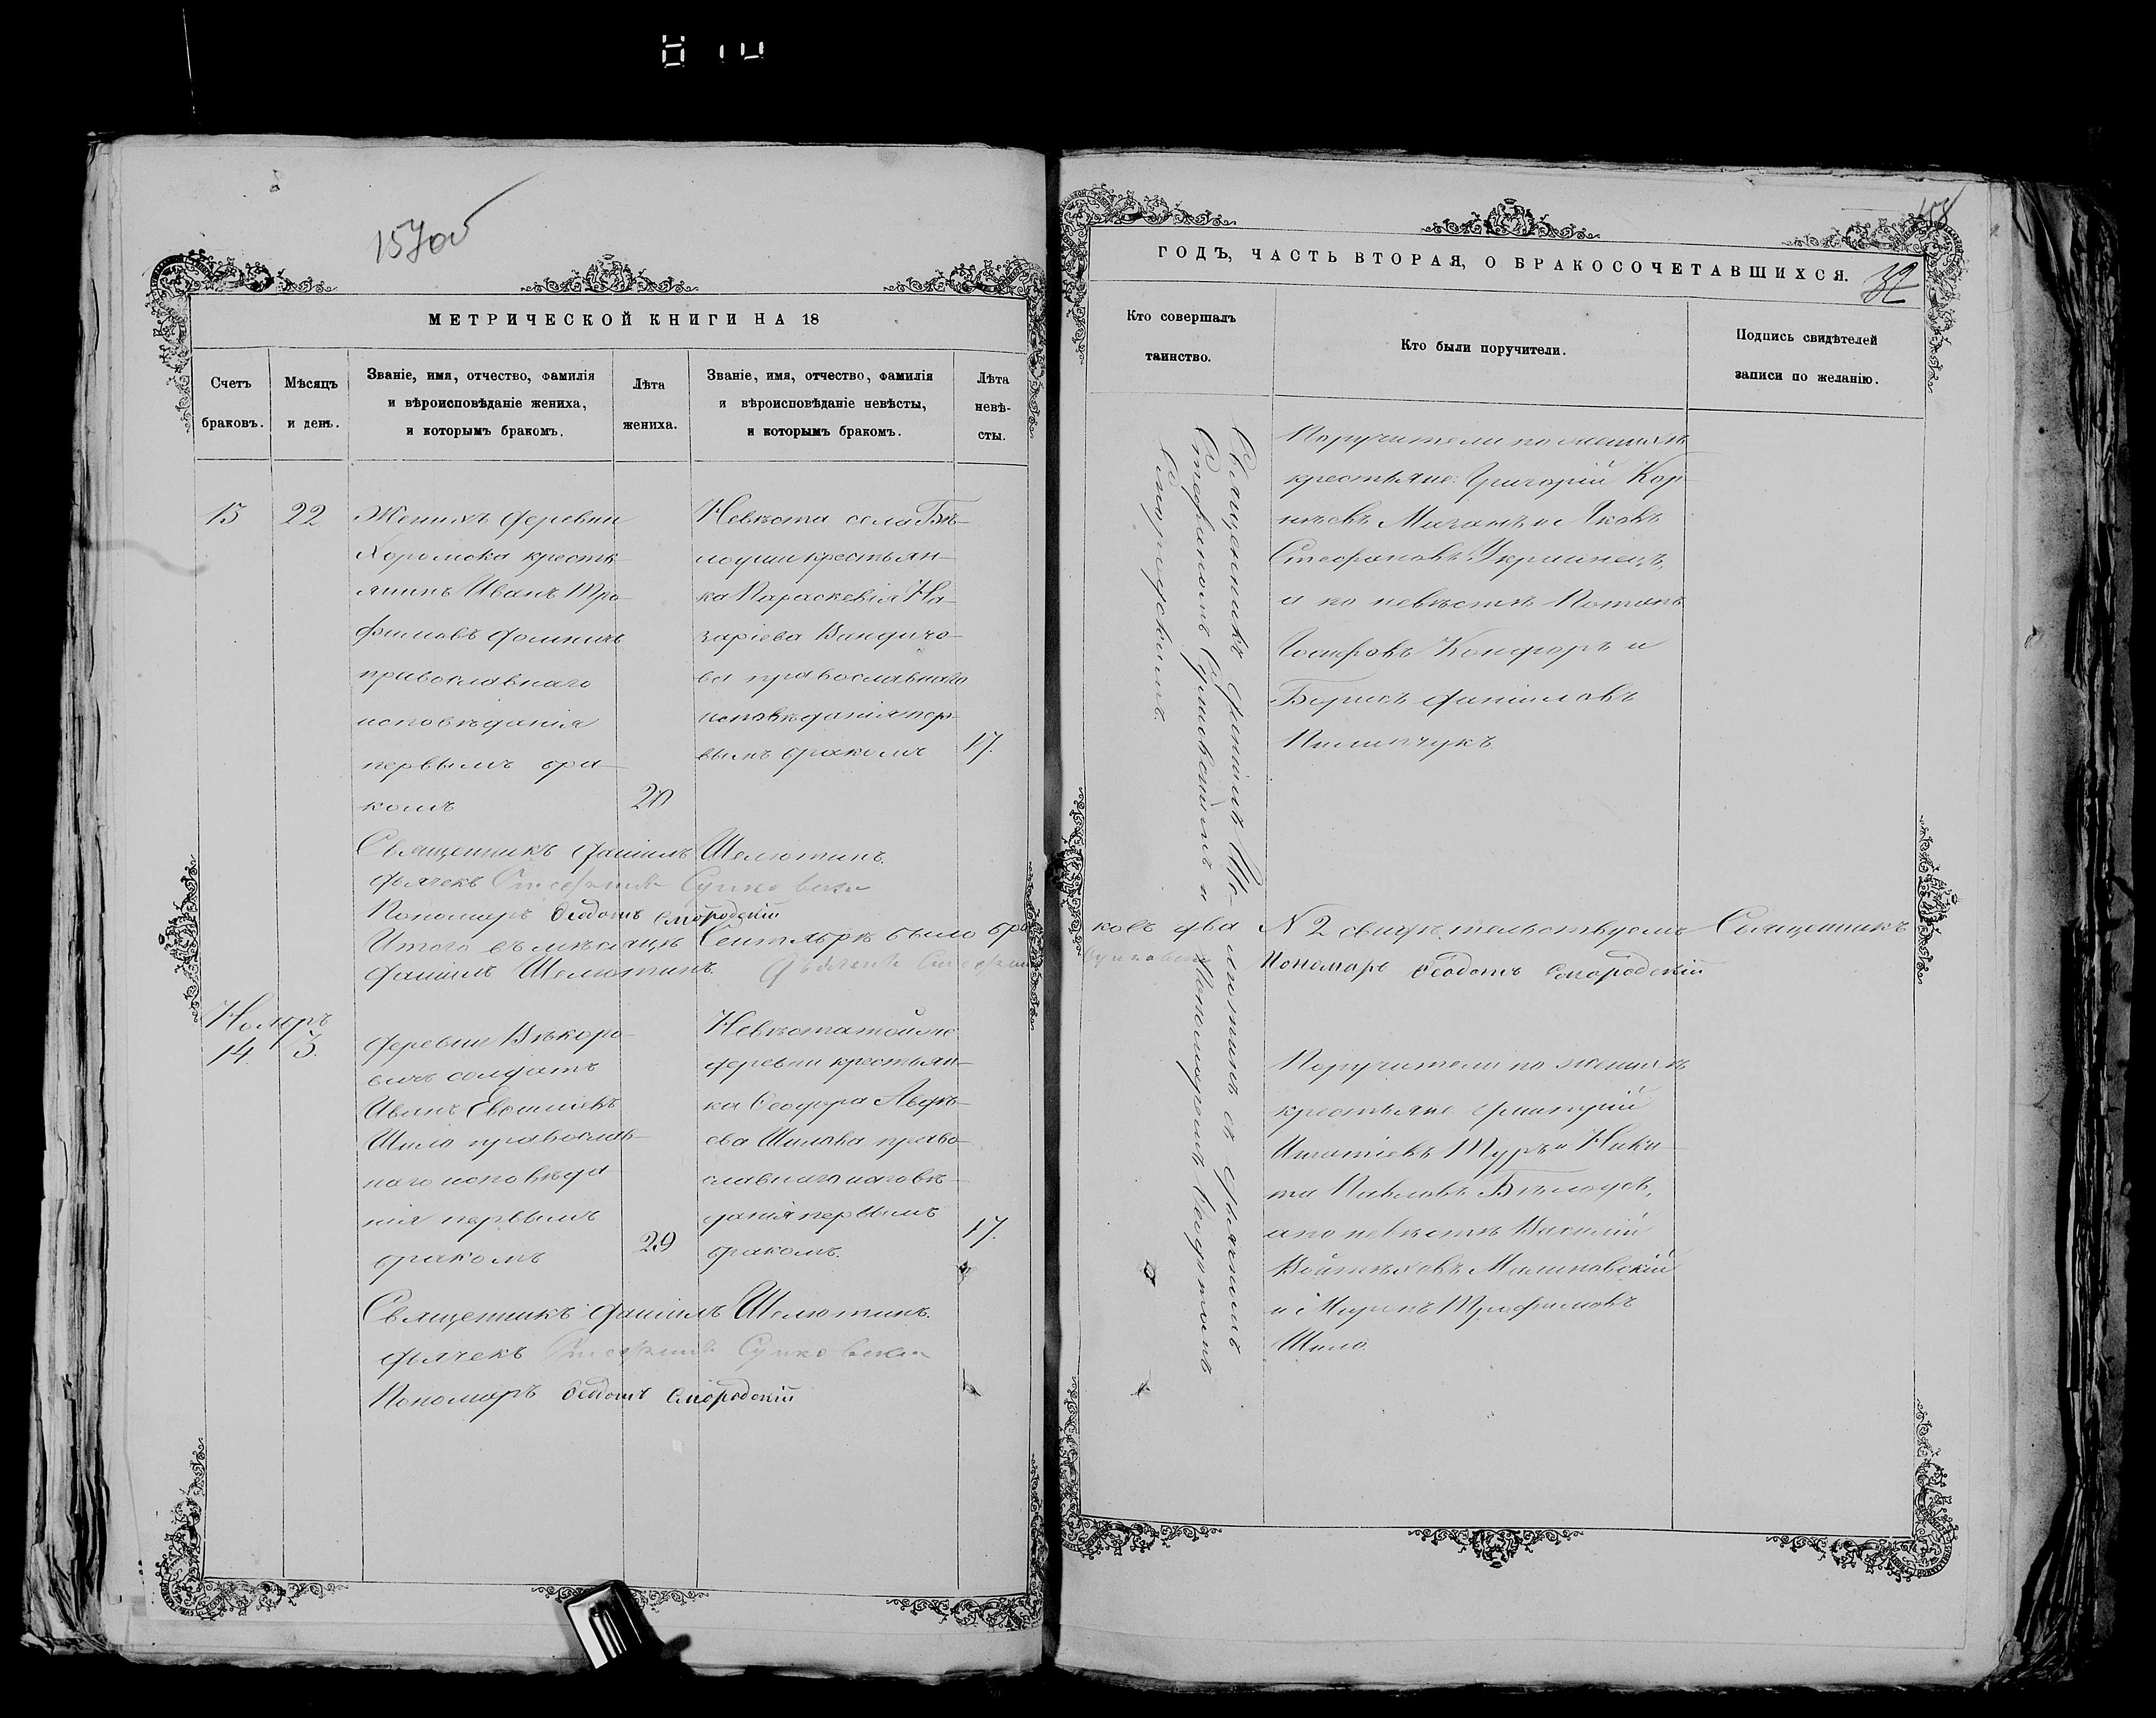 157об
МЕТРИЧЕСКОЙ КНИГИ НА 18
Счетъ браковъ.
Мѣсяцъ и день.
Званіе, имя, отчество, фамилія
и вѣроисповѣданіе жениха,
и которымъ бракомъ.
Лѣта жениха.
Званіе, имя, отчество, фамилія
и вѣроисповѣданіе невѣсты,
и которымъ бракомъ.
Лѣта невѣ-
сты.
22
Женихъ деревни
Хоромска кресть
янинъ Иванъ Тро
фимовъ
православнаго
исповѣданія
первымъ бра
комъ
20
Невѣста села Бѣ-
лоуши крестьян-
ка Параскевія На-
заріева
ва православнаго
исповѣданія пер-
вымъ бракомъ
17.
Священникъ Даніилъ Шелютинъ.
Дьячекъ Стефанъ
Пономарь Ѳеодотъ Смородскій
Итого въ мѣсяцѣ Сентябрѣ было бра
Даніилъ Шелютинъ. Дьячекъ Стефанъ
Ноябрь
14. 3.
Деревни
солдатъ
Иванъ
Шило православ-
наго исповѣда
нія первымъ
бракомъ
29
Невѣста той же
деревни крестьян-
ка Ѳеодора
ева Шилова право-
славнаго исповѣ-
данія первымъ
бракомъ.
17.
Священникъ Даніилъ Шелютинъ.
Дьячекъ Стефанъ
Пономарь Ѳеодотъ Смородскій
158
ГОДЪ, ЧАСТЬ ВТОРАЯ, О БРАКОСОЧЕТАВШИХСЯ.
Кто совершалъ
таинство.
Кто были поручители.
Подпись свидѣтелей
записи по желанію.
Священникъ Даніилъ Ше-лютинъ съ дьячкомъ
Стефаномъ и Пономаремъ Ѳеодотомъ
Смородскимъ.
Поручители по женихѣ
крестьяне: Григорій Кор
нѣевъ и Яковъ
Стефановъ Украинецъ,
а по невѣстѣ Потапъ
Іосифовъ и
Борисъ Даніиловъ
Пилипчукъ
ковъ два № 2 свидѣтельствуемъ Священникъ
Пономарь Ѳеодотъ Смородскій
Поручители по женихѣ
крестьяне Димитрій
Игнатіевъ Туръ и Ники
та Павловъ
а по невѣстѣ Василій
Малиновскій
и Миронъ Трофимовъ
Шило.